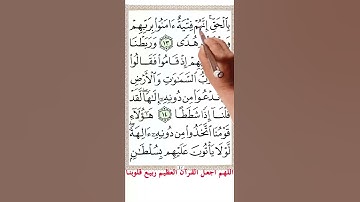 بِٱلْحَقِّ ۚ إِنَّهُمْ فِتْيَةٌ ءَامَنُوا۟ بِرَبِّهِمْ
هُدًى ١٣ وَرَبَطْنَا
إِذْ قَامُوا۟ فَقَالُوا۟
ٱلسَّمَٰوَٰتِ وَٱلْأَرْضِ
نَّدْعُوَا۟ مِن دُونِهِۦٓ إِلَٰهًا ۖ لَّقَدْ
قُلْنَآ إِذًا شَطَطًا ١٤ هَٰٓؤُلَآءِ
قَوْمُنَا ٱتَّخَذُوا۟ مِن دُونِهِۦٓ ءَالِهَةً ۖ
لَّوْلَا يَأْتُونَ عَلَيْهِم بِسُلْطَٰنٍۭ
اللهم اجعل القرآن العظيم ربيع قلوبنا